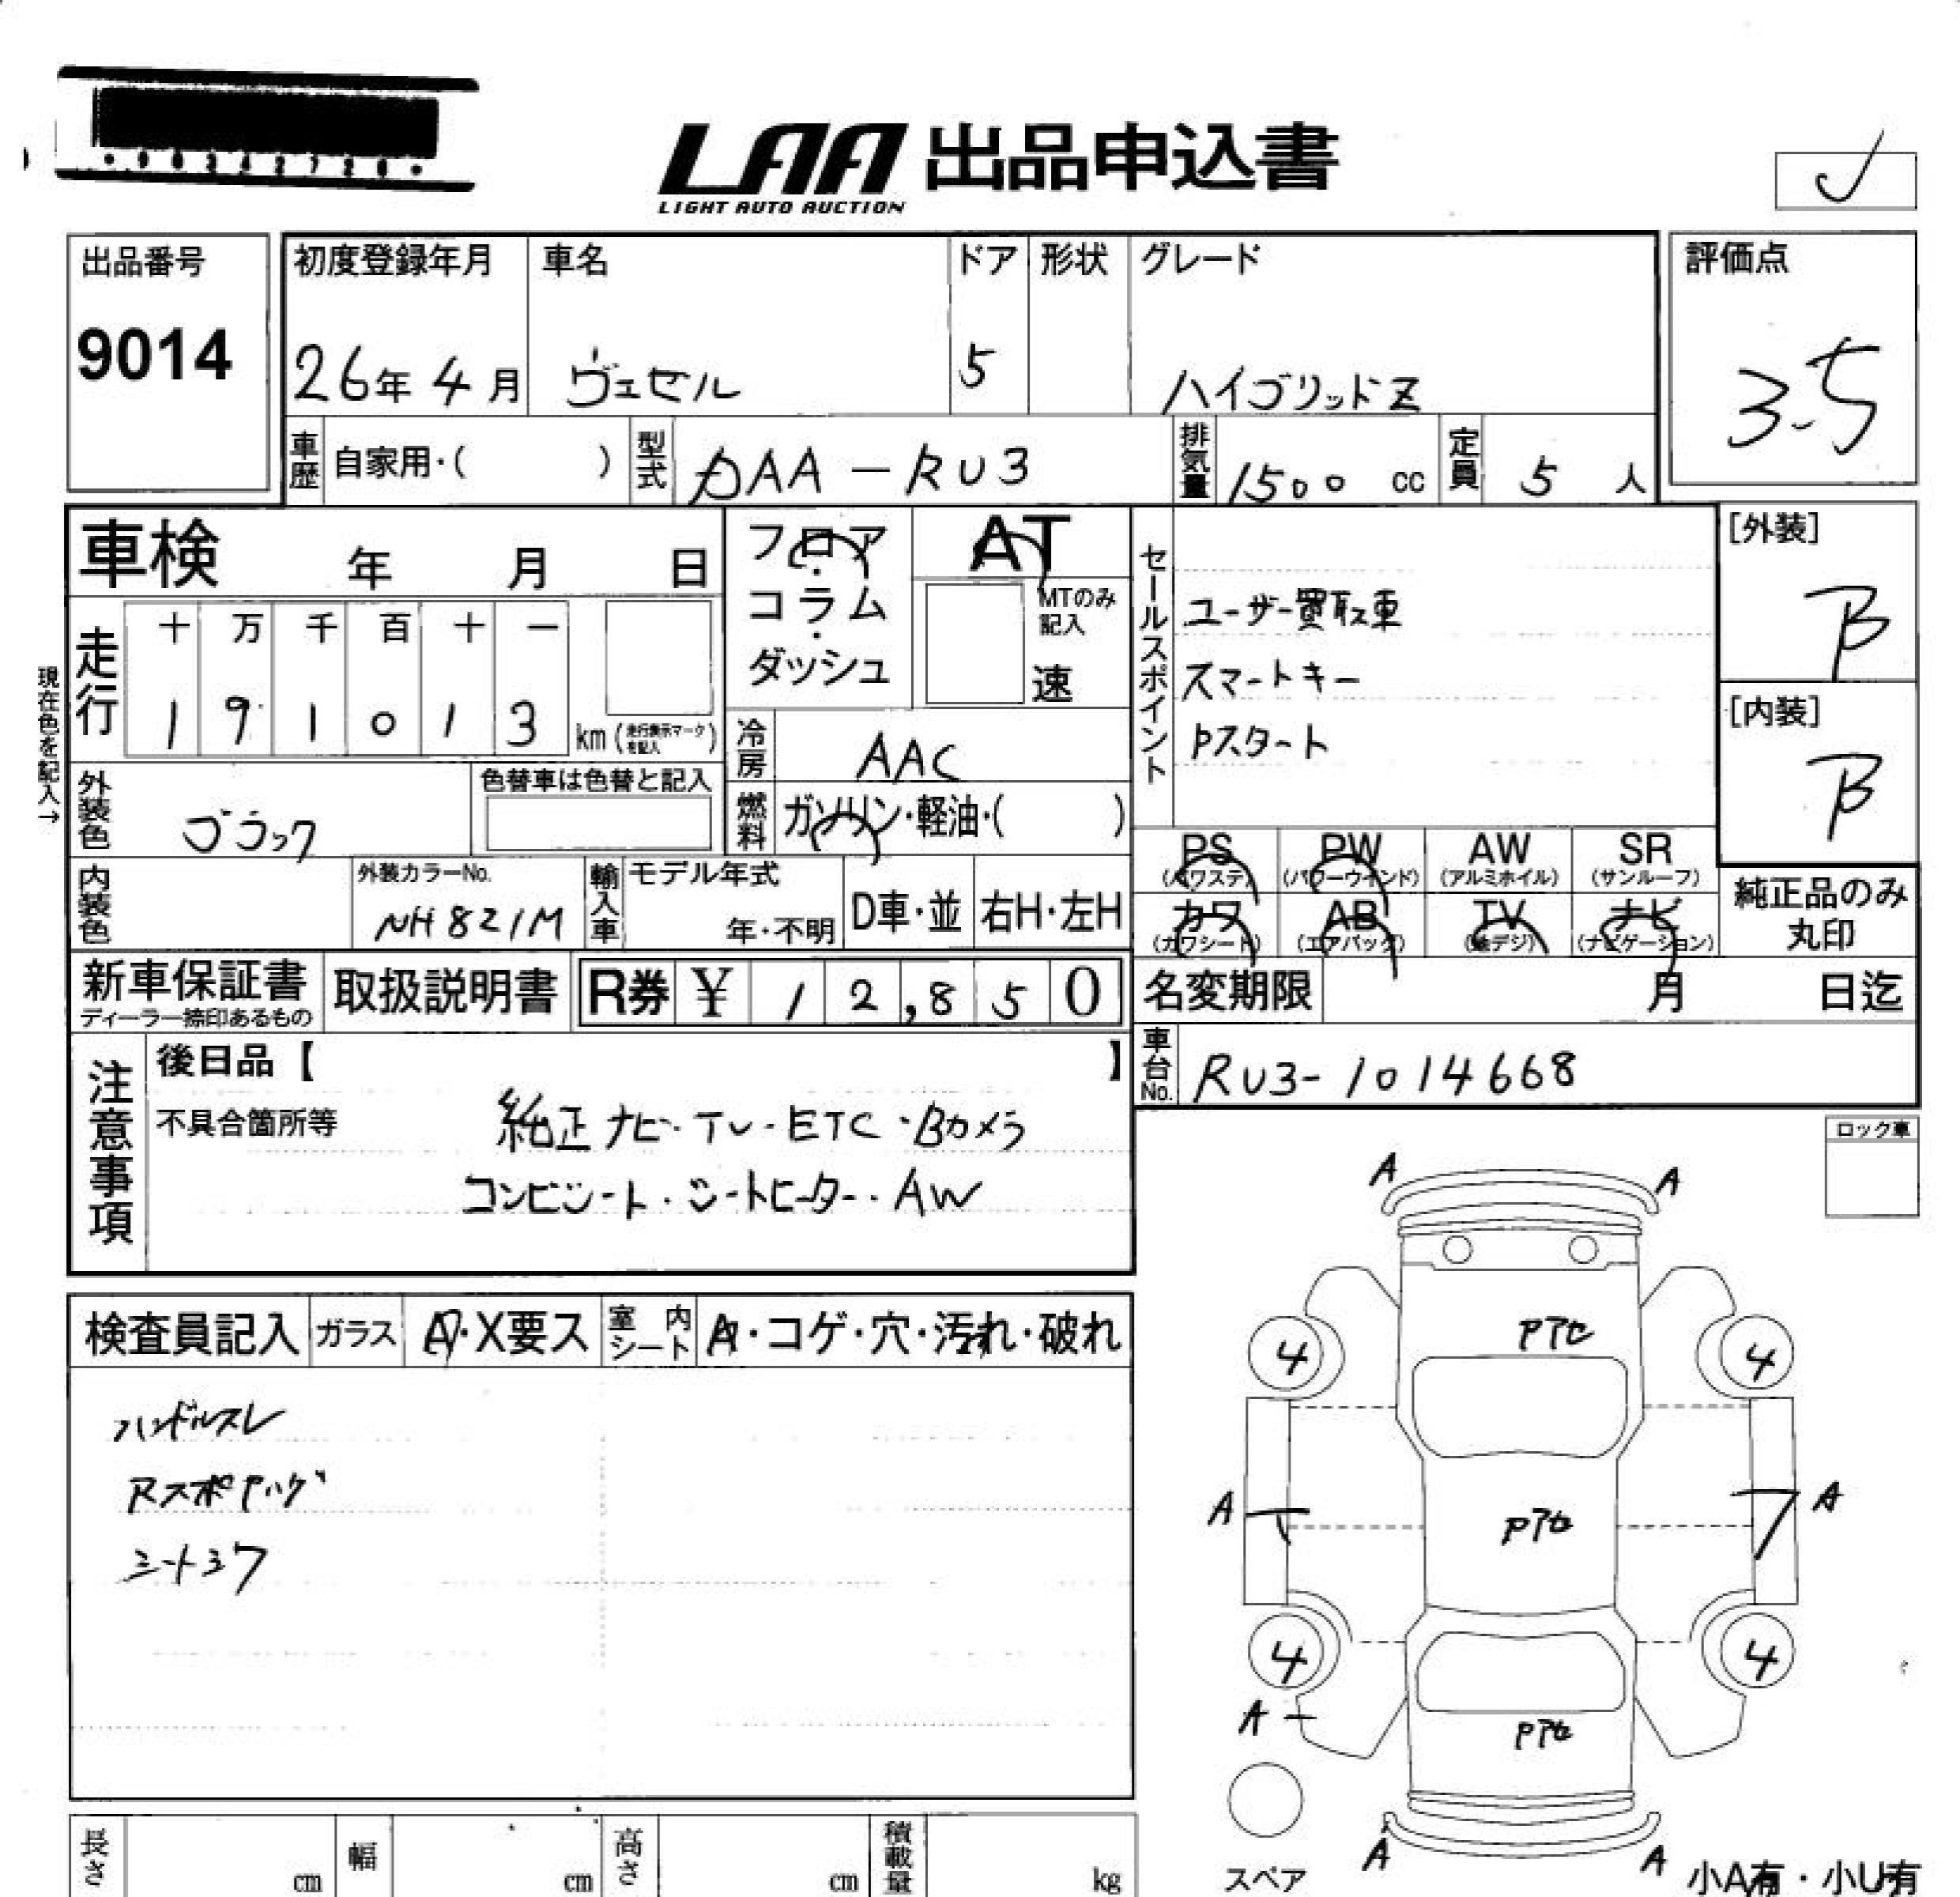 LAA 出品申込書
LIGHT AUTO AUCTION
出品番号
9014
初度登録年月 車名 ドア 形状 グレード
26年 4月 ヴェゼル 5 ハイブリッドZ
評価点
3.5
車歴 自家用・( ) 型式 DAA-RU3 排気量 1500 cc 定員 5 人
車検 年 月 日
フロア・コラム・ダッシュ
AT
MTのみ記入
速
セールスポイント
ユーザー買取車
スマートキー
Pスタート
[外装]
B
[内装]
B
現在色を記入→
走行 十 万 千 百 十 一
1 9 1 0 1 3 km (走行表示マークを記入)
冷房 AAC
外装色 ブラック
色替車は色替と記入
燃料 ガソリン・軽油・( )
PS (パワステ) PW (パワーウインド) AW (アルミホイル) SR (サンルーフ)
カワ (カワシート) AB (エアバッグ) TV (地デジ) ナビ (ナビゲーション)
純正品のみ
丸印
内装色
外装カラーNo.
NH821M
輸入車 モデル年式
年・不明 D車・並 右H・左H
新車保証書
ディーラー捺印あるもの
取扱説明書 R券 ¥ 12,850
名変期限 月 日迄
車台No. RU3-1014668
注意事項
後日品【 】
不具合箇所等
純正ナビ・TV・ETC・Bカメラ
コンビシート・シートヒーター・AW
ロック車
検査員記入 ガラス A・X要ス 室内シート A・コゲ・穴・汚れ・破れ
ハンドルスレ
シートシワ
A A
4 4
A A
4 4
A
A A
スペア
小A有・小U有
長さ cm 幅 cm 高さ cm 積載量 kg